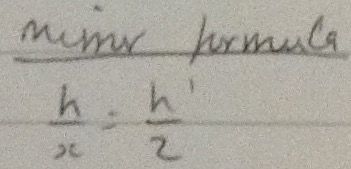 mirror formula
h/x = h'/z